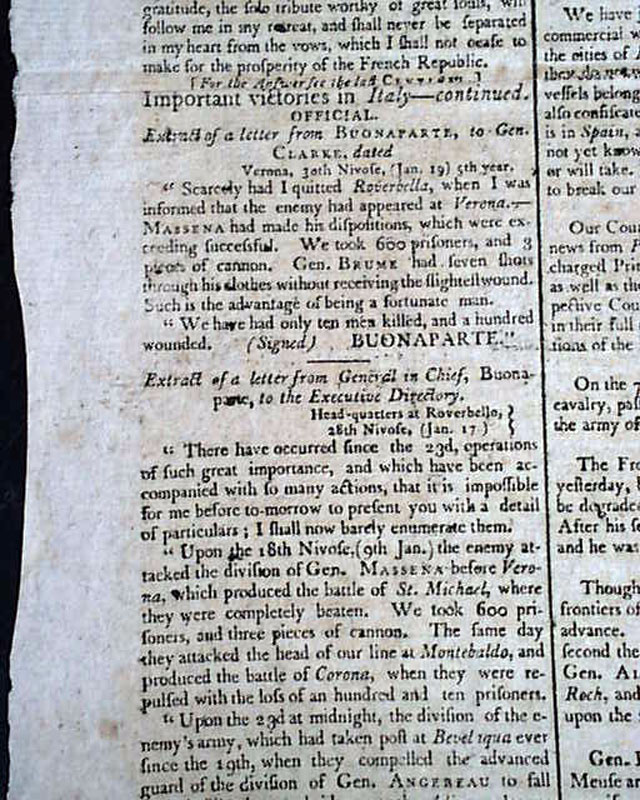 gratitude, the ſole tribute worthy of great ſouls, will
follow me in my retreat, and ſhall never be ſeparated
in my heart from the vows, which I ſhall not ceaſe to
make for the proſperity of the French Republic.
[For the Anſwer ſee the laſt CENTINEL.]
Important victories in Italy—continued.
OFFICIAL.
Extract of a letter from BUONAPARTE, to Gen.
CLARKE, dated
Verona, 30th Nivoſe, (Jan. 19) 5th year.
" Scarcely had I quitted Roverbella, when I was
informed that the enemy had appeared at Verona.—
MASSENA had made his diſpoſitions, which were ex-
ceeding ſucceſsful. We took 600 priſoners, and 3
pieces of cannon. Gen. BRUME had ſeven ſhots
through his clothes without receiving the ſlighteſt wound.
Such is the advantage of being a fortunate man.
" We have had only ten men killed, and a hundred
wounded. (Signed) BUONAPARTE."
Extract of a letter from General in Chief, Buona-
parte, to the Executive Directory.
Head-quarters at Roverbello, }
28th Nivoſe, (Jan. 17) }
" There have occurred ſince the 23d, operations
of ſuch great importance, and which have been ac-
companied with ſo many actions, that it is impoſſible
for me before to-morrow to preſent you with a detail
of particulars ; I ſhall now barely enumerate them.
" Upon the 18th Nivoſe,(9th Jan.) the enemy at-
tacked the diviſion of Gen. MASSENA before Vero-
na, which produced the battle of St. Michael, where
they were completely beaten. We took 600 pri-
ſoners, and three pieces of cannon. The ſame day
they attacked the head of our line at Montebaldo, and
produced the battle of Corona, when they were re-
pulſed with the loſs of an hundred and ten priſoners.
" Upon the 23d at midnight, the diviſion of the e-
nemy's army, which had taken poſt at Bevelaqua ever
ſince the 19th, when they compelled the advanced
guard of the diviſion of Gen. ANGEREAU to fall
We have
commercial
the cities of
veſſels belong
alſo confiſcate
is in Spain,
not yet know
or will take.
to break our
Our Cou
news from
charged Prin
as well as the
pective Cou
in their full
tions of the
On the 7
cavalry, paſ
the army of
The Fre
yeſterday,
be degraded
After his ſe
and he was
Though
frontiers of
advance.
ſecond the
Gen. AL
Roch, and
upon the
Gen.
Meuſe an